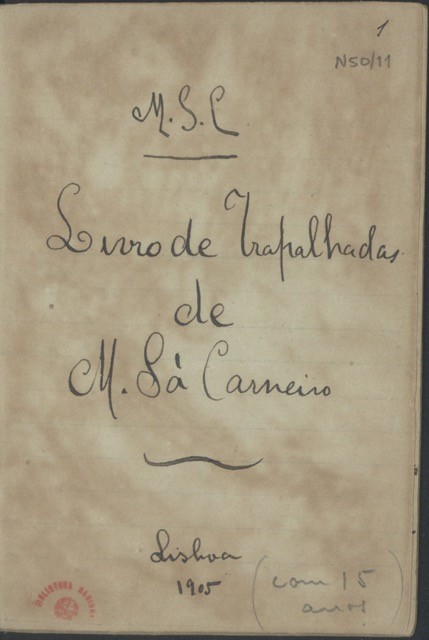 1
N50/11
M. S. C
Livro de Trapalhadas
de
M. Sá Carneiro
Lisboa
1905
(com 15
anos)
BIBLIOTECA NACIONAL